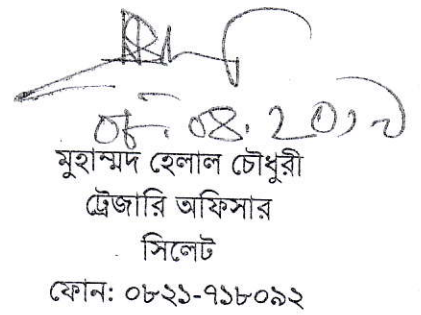 ০৮.০৪.২০১৯
মুহাম্মদ হেলাল চৌধুরী
ট্রেজারি অফিসার
সিলেট
ফোন: ০৮২১-৭১৮০৯২